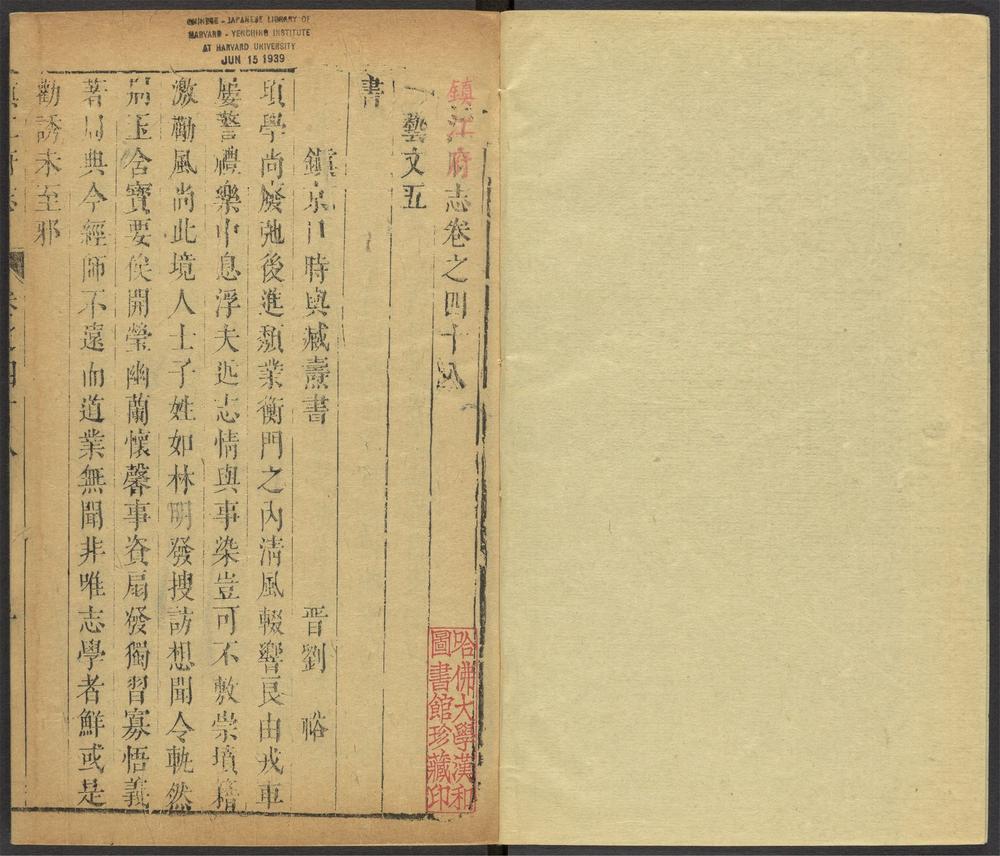 CHINESE - JAPANESE LIBRARY OF
HARVARD - YENCHING INSTITUTE
AT HARVARD UNIVERSITY
JUN 15 1939
鎮江府志卷之四十八
藝文五
書
鎮京口時與臧燾書 晋劉 裕
頃學尚廢弛後進頹業衡門之內清風輟響良由戎車
屢警禮樂中息浮夫近志情與事染豈可不敷崇墳籍
激勵風尚此境人士子姓如林明發搜訪想聞令軌然
荊玉含寶要俟開瑩幽蘭懷馨事資扇發獨習寡悟義
著周典今經師不遠而道業無聞非唯志學者鮮或是
勸誘未至邪
哈佛大學漢和
圖書館珍藏印